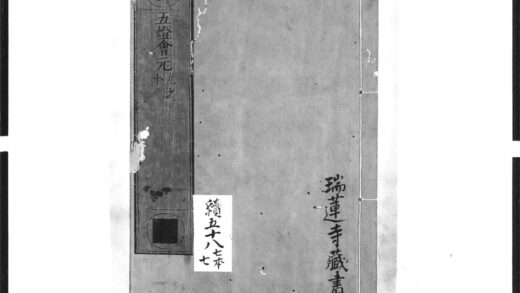 五燈會元
九之
十
續
五十八
七本
七
瑞蓮寺藏書